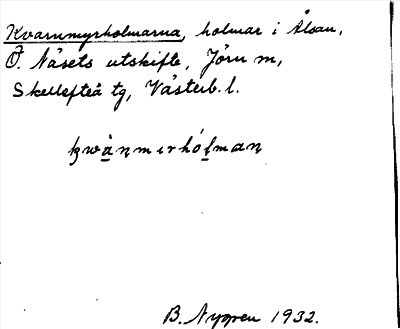 Kvarnmyrholmarna, holmar i Ålsån,
Ö. Näsets utskifte, Jörn sn,
Skellefteå tg, Västerb. l.
kwànmırhólman
B. Nygren 1932.